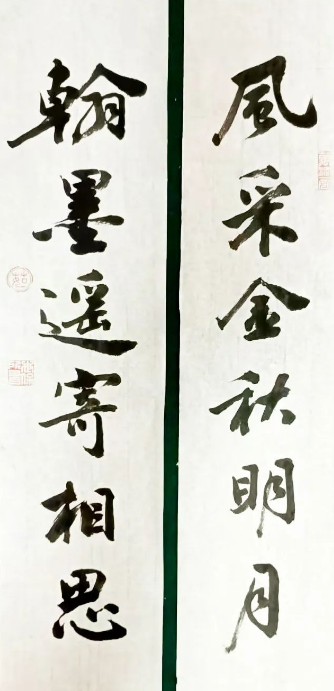 風采金秋明月
翰墨遥寄相思